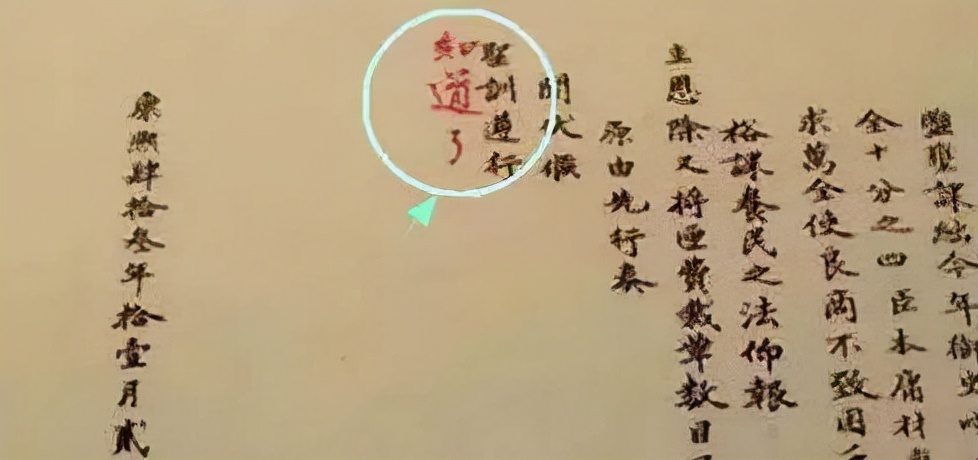 今年御史
金十分之四臣本庸材
求萬金使良商不致困
裕課養民之法仰報
主恩除又將匣費數單數目
原由先行奏
聞伏候
聖訓遵行
知道了
康熙肆拾叁年拾壹月貳